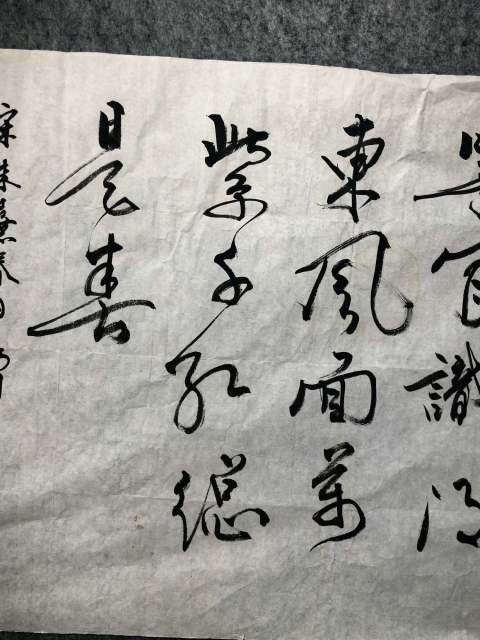 等閒識得
東風面萬
紫千紅總
是春
宋朱熹春日